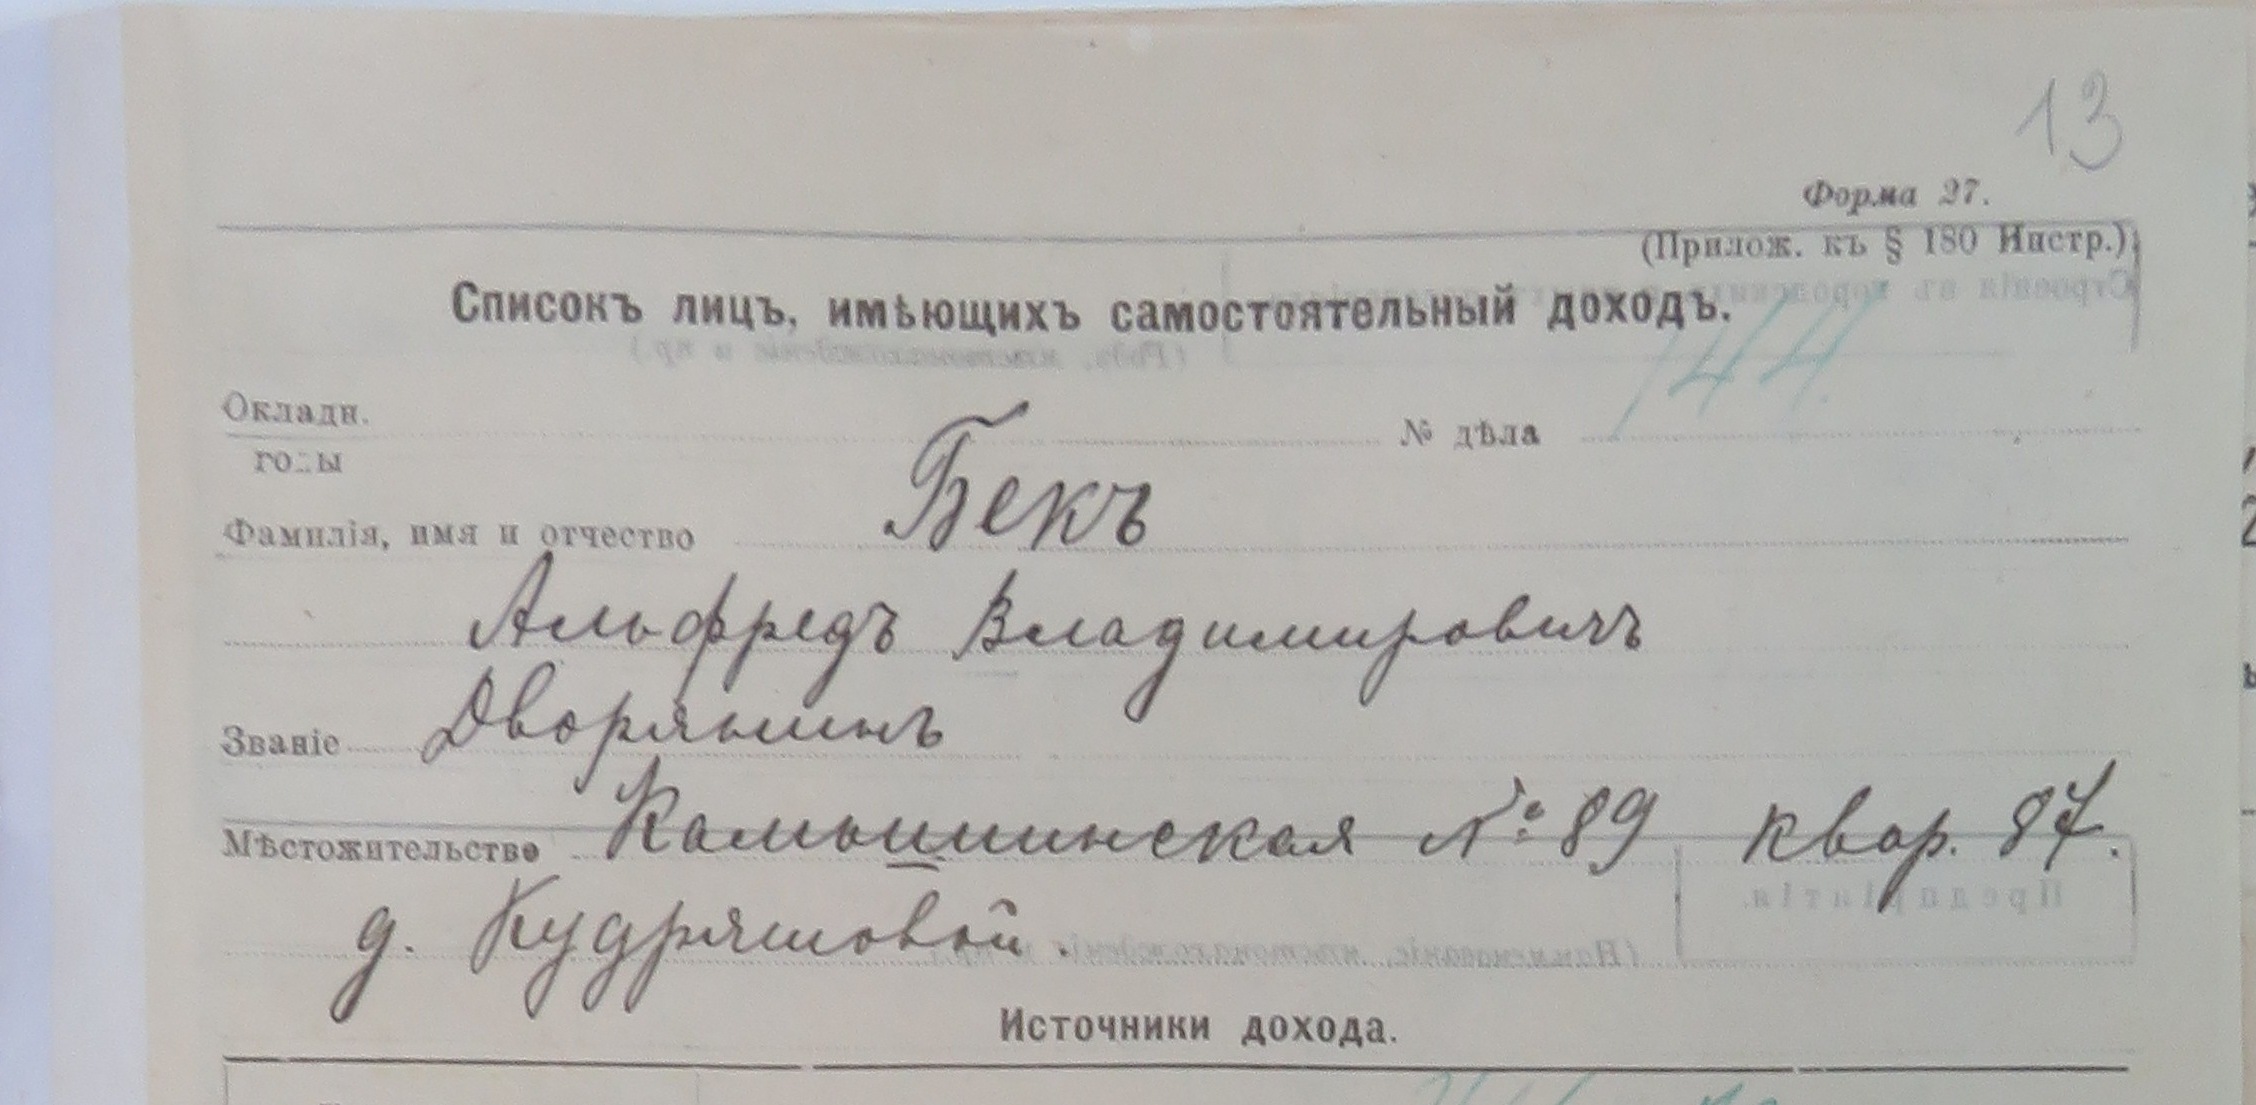 13
Форма 27.
(Прилож. къ § 180 Инстр.)
Списокъ лицъ, имѣющихъ самостоятельный доходъ.
Окладн.
годы
№ дѣла 144.
Фамилія, имя и отчество Бекъ
Альфредъ Владимировичъ
Званіе Дворянинъ
Мѣстожительство Камышинская № 89 квар. 87.
д. Кудряшовой.
Источники дохода.